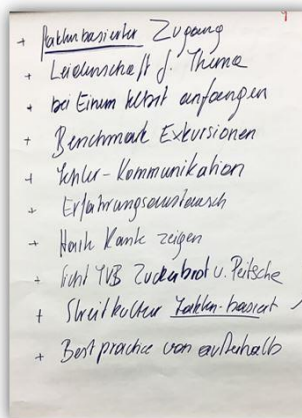 + Faktenbasierter Zugang
+ Leidenschaft f. Thema
+ bei Einem selbst anfangen
+ Benchmark Exkursionen
+ Fehler-Kommunikation
+ Erfahrungsaustausch
+ Klare Kante zeigen
+ Zuckerbrot u. Peitsche
+ Streitkultur Fakten-basiert
+ Best practice von außerhalb